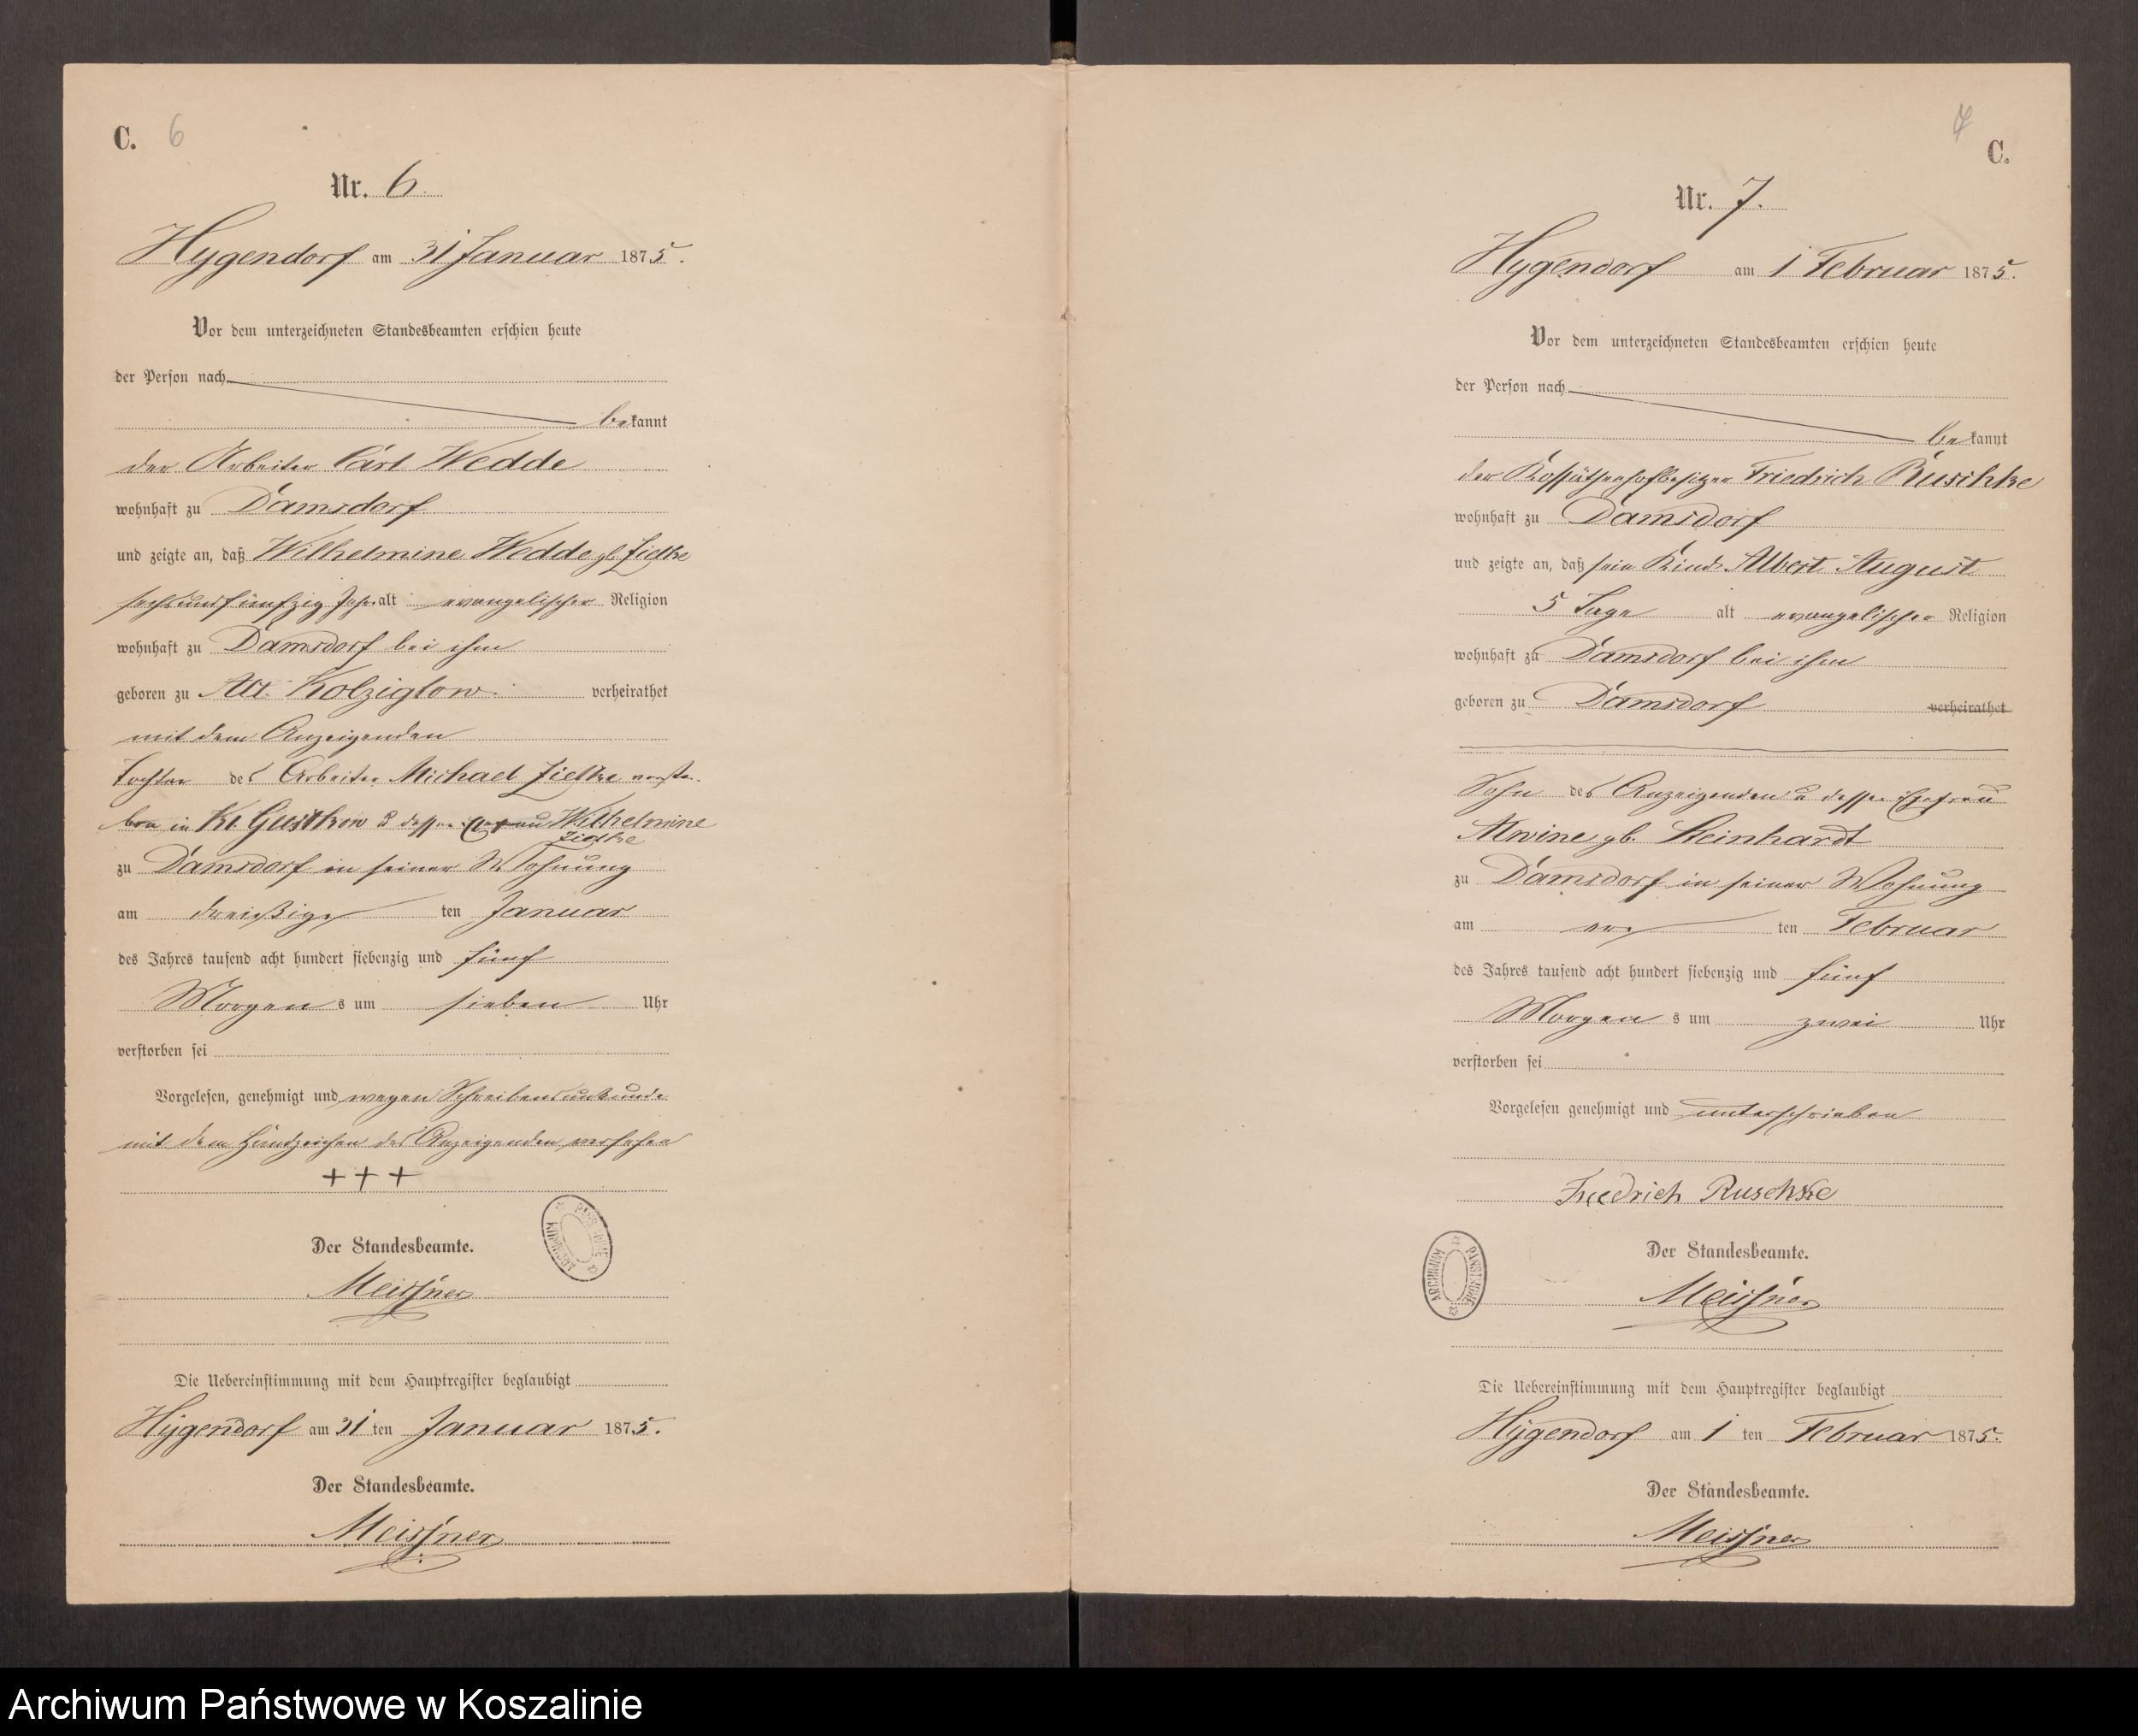 C. 6
Nr. 6.
Hygendorf am 31 Januar 1875.
Vor dem unterzeichneten Standesbeamten erschien heute
der Person nach
bekannt
der Arbeiter Carl Wedde
wohnhaft zu Damsdorf
und zeigte an, daß Wilhelmine Wedde gb. Zielke
sechsundfünfzig Jahr alt evangelischer Religion
wohnhaft zu Damsdorf bei ihm
geboren zu Alt Kolziglow verheirathet
mit dem Anzeigenden
Tochter des Arbeiter Michael Zielke verstor-
ben in Kl. Gustkow u dessen Ehefrau Wilhelmine
Zielke
zu Damsdorf in seiner Wohnung
am dreißig ten Januar
des Jahres tausend acht hundert siebenzig und fünf
Morgen s um sieben Uhr
verstorben sei
Vorgelesen, genehmigt und wegen Schreibensunkunde
mit dem Handzeichen des Anzeigenden versehen
+++
Der Standesbeamte.
Meissner
ARCHIWUM PAŃSTWOWE
Die Uebereinstimmung mit dem Hauptregister beglaubigt
Hygendorf am 31 ten Januar 1875.
Der Standesbeamte.
Meissner
7
C.
Nr. 7.
Hygendorf am 1 Februar 1875.
Vor dem unterzeichneten Standesbeamten erschien heute
der Person nach
bekannt
der Kossäthenhofbesitzer Friedrich Ruschke
wohnhaft zu Damsdorf
und zeigte an, daß sein Kind Albert August
5 Tage alt evangelischer Religion
wohnhaft zu Damsdorf bei ihm
geboren zu Damsdorf verheirathet
Sohn des Anzeigenden u dessen Ehefrau
Alwine gb. Steinhardt
zu Damsdorf in seiner Wohnung
am ers ten Februar
des Jahres tausend acht hundert siebenzig und fünf
Morgen s um zwei Uhr
verstorben sei
Vorgelesen genehmigt und unterschrieben
Friedrich Ruschke
Der Standesbeamte.
Meissner
ARCHIWUM PAŃSTWOWE
Die Uebereinstimmung mit dem Hauptregister beglaubigt
Hygendorf am 1 ten Februar 1875.
Der Standesbeamte.
Meissner
Archiwum Państwowe w Koszalinie